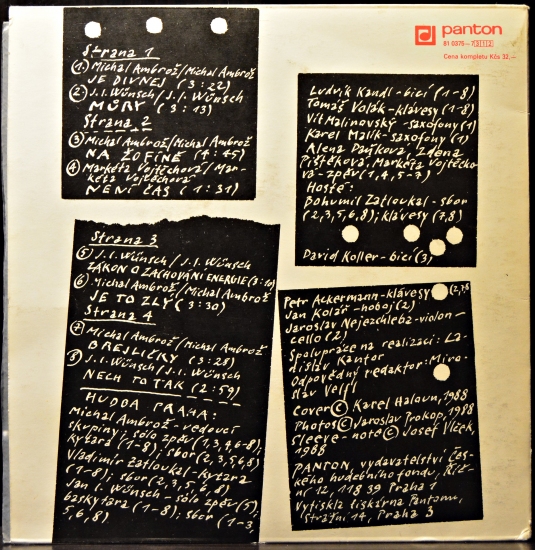 panton
81 0375-7 311
Cena kompletu Kčs 32,—
Strana 1
① Michal Ambrož/Michal Ambrož
JE DIVNEJ (3:22)
② J.I.Wünsch/J.I.Wünsch
MŮRY (3:13)
Strana 2
③ Michal Ambrož/Michal Ambrož
NA ŽOFÍNĚ (4:45)
④ Markéta Vojtěchová/Mar-
kéta Vojtěchová
NENÍ ČAS (1:31)
Strana 3
⑤ J.I.Wünsch/J.I.Wünsch
ZÁKON O ZACHOVÁNÍ ENERGIE (3:10)
⑥ Michal Ambrož/Michal Ambrož
JE TO ZLÝ (3:30)
Strana 4
⑦ Michal Ambrož/Michal Ambrož
BREJLIČKY (3:28)
⑧ J.I.Wünsch/J.I.Wünsch
NECH TO TAK (2:59)
HUDBA PRAHA:
Michal Ambrož - vedoucí
skupiny; sólo zpěv (1,3,4,6-8);
kytara (1-8); sbor (2,3,5,6,8)
Vladimír Zatloukal - kytara
(1-8); sbor (2,3,5,6,8)
Jan I. Wünsch - sólo zpěv (5);
baskytara (1-8); sbor (1-3,
5,6,8)
Ludvík Kandl - bicí (1-8)
Tomáš Volák - klávesy (1-8)
Vít Malinovský - saxofony (1)
Karel Malík - saxofony (1)
Alena Daňková, Zdena
Pištěková, Markéta Vojtěcho-
vá - zpěv (1,4,5-7)
Hosté:
Bohumil Zatloukal - sbor
(2,3,5,6,8); klávesy (7,8)
David Koller - bicí (3)
Petr Ackermann - klávesy (2,7,8)
Jan Kolář - hoboj (2)
Jaroslav Nejezchleba - violon-
cello (2)
Spolupráce na realizaci: La-
dislav Kantor
Odpovědný redaktor: Miro-
slav Vepřl
Cover © Karel Haloun, 1988
Photos © Jaroslav Prokop, 1988
Sleeve-note © Josef Vlček,
1988
PANTON, vydavatelství Čes-
kého hudebního fondu, Říč-
ní 12, 118 39 Praha 1
Vytiskla tiskárna Pantonu,
Strašní 14, Praha 3